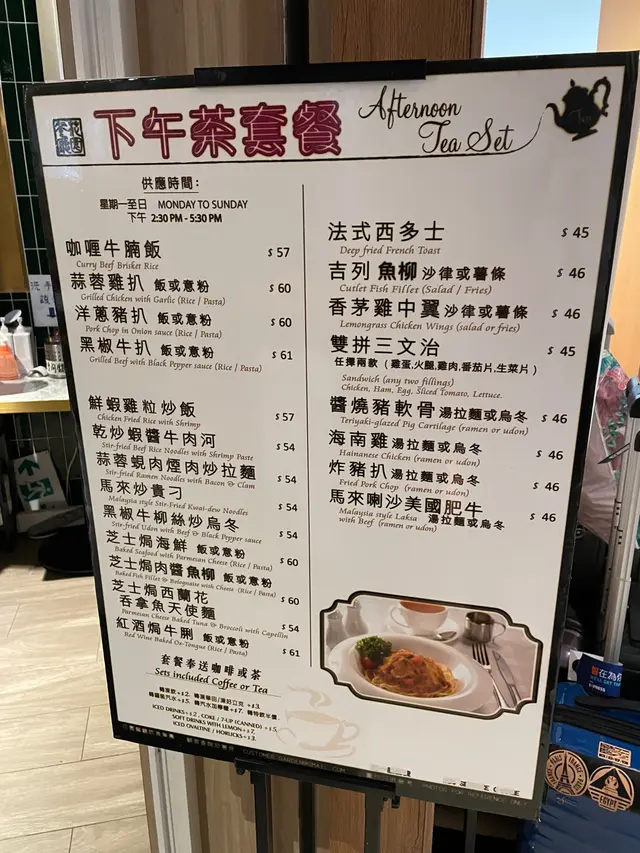 下午茶套餐
Afternoon
Tea Set
供應時間：
星期一至日 MONDAY TO SUNDAY
下午 2:30 PM - 5:30 PM
咖喱牛腩飯 $ 57
Curry Beef Brisket Rice
蒜蓉雞扒 飯或意粉 $ 60
Grilled Chicken with Garlic (Rice / Pasta)
洋蔥豬扒 飯或意粉 $ 60
Pork Chop in Onion sauce (Rice / Pasta)
黑椒牛扒 飯或意粉 $ 61
Grilled Beef with Black Pepper sauce (Rice / Pasta)
鮮蝦雞粒炒飯 $ 57
Chicken Fried Rice with Shrimp
乾炒蝦醬牛肉河 $ 54
Stir-fried Beef Rice Noodles with Shrimp Paste
蒜蓉蜆肉煙肉炒拉麵 $ 54
Stir-fried Ramen Noodles with Bacon & Clam
馬來炒貴刁 $ 54
Malaysia style Stir-Fried Kwai-dew Noodles
黑椒牛柳絲炒烏冬 $ 54
Stir-fried Udon with Beef & Black Pepper sauce
芝士焗海鮮 飯或意粉 $ 60
Baked Seafood with Parmesan Cheese (Rice / Pasta)
芝士焗肉醬魚柳 飯或意粉 $ 60
Baked Fish Fillet & Bolognaise with Cheese (Rice / Pasta)
芝士焗西蘭花
吞拿魚天使麵 $ 54
Parmesan Cheese Baked Tuna & Broccoli with Capellin
紅酒焗牛脷 飯或意粉 $ 61
Red Wine Baked Ox-Tongue (Rice / Pasta)
套餐奉送咖啡或茶
Sets included Coffee or Tea
ICED DRINKS+$2, COKE / 7-UP (CANNED) +$5,
SOFT DRINKS WITH LEMON+$7,
ICED OVALTINE / HORLICKS+$3.
法式西多士 $ 45
Deep fried French Toast
吉列魚柳 沙律或薯條 $ 46
Cutlet Fish Fillet (Salad / Fries)
香茅雞中翼 沙律或薯條 $ 46
Lemongrass Chicken Wings (salad or fries)
雙拼三文治 $ 45
任擇兩款（雞蛋,火腿,雞肉,番茄片,生菜片）
Sandwich (any two fillings)
Chicken, Ham, Egg, Sliced Tomato, Lettuce.
醬燒豬軟骨 湯拉麵或烏冬 $ 46
Teriyaki-glazed Pig Cartilage (ramen or udon)
海南雞 湯拉麵或烏冬 $ 46
Hainanese Chicken (ramen or udon)
炸豬扒 湯拉麵或烏冬 $ 46
Fried Pork Chop (ramen or udon)
馬來喇沙美國肥牛
湯拉麵或烏冬 $ 46
Malaysia style Laksa
with Beef (ramen or udon)
PHOTOS FOR REFERENCE ONLY
EGYPT